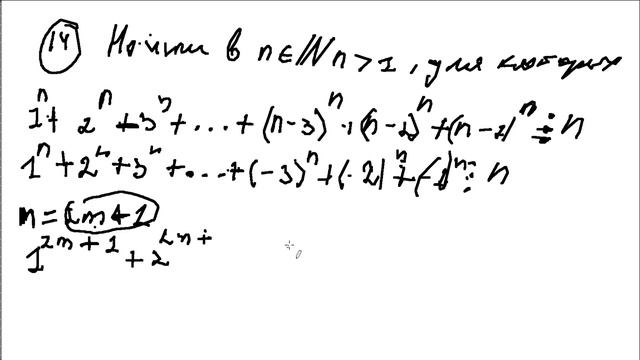 14 Найти в n∈ℕ n>1, для которых
1ⁿ + 2ⁿ + 3ⁿ + ... + (n-3)ⁿ + (n-2)ⁿ + (n-1)ⁿ ⋮ n
1ⁿ + 2ⁿ + 3ⁿ + ... + (-3)ⁿ + (-2)ⁿ + (-1)ⁿ ⋮ n
n = 2m+1
1²ᵐ⁺¹ + 2²ᵐ⁺